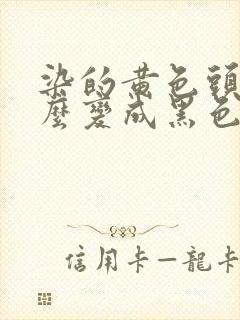 染的黃色頭
麼變成黑色
信用卡—龍卡